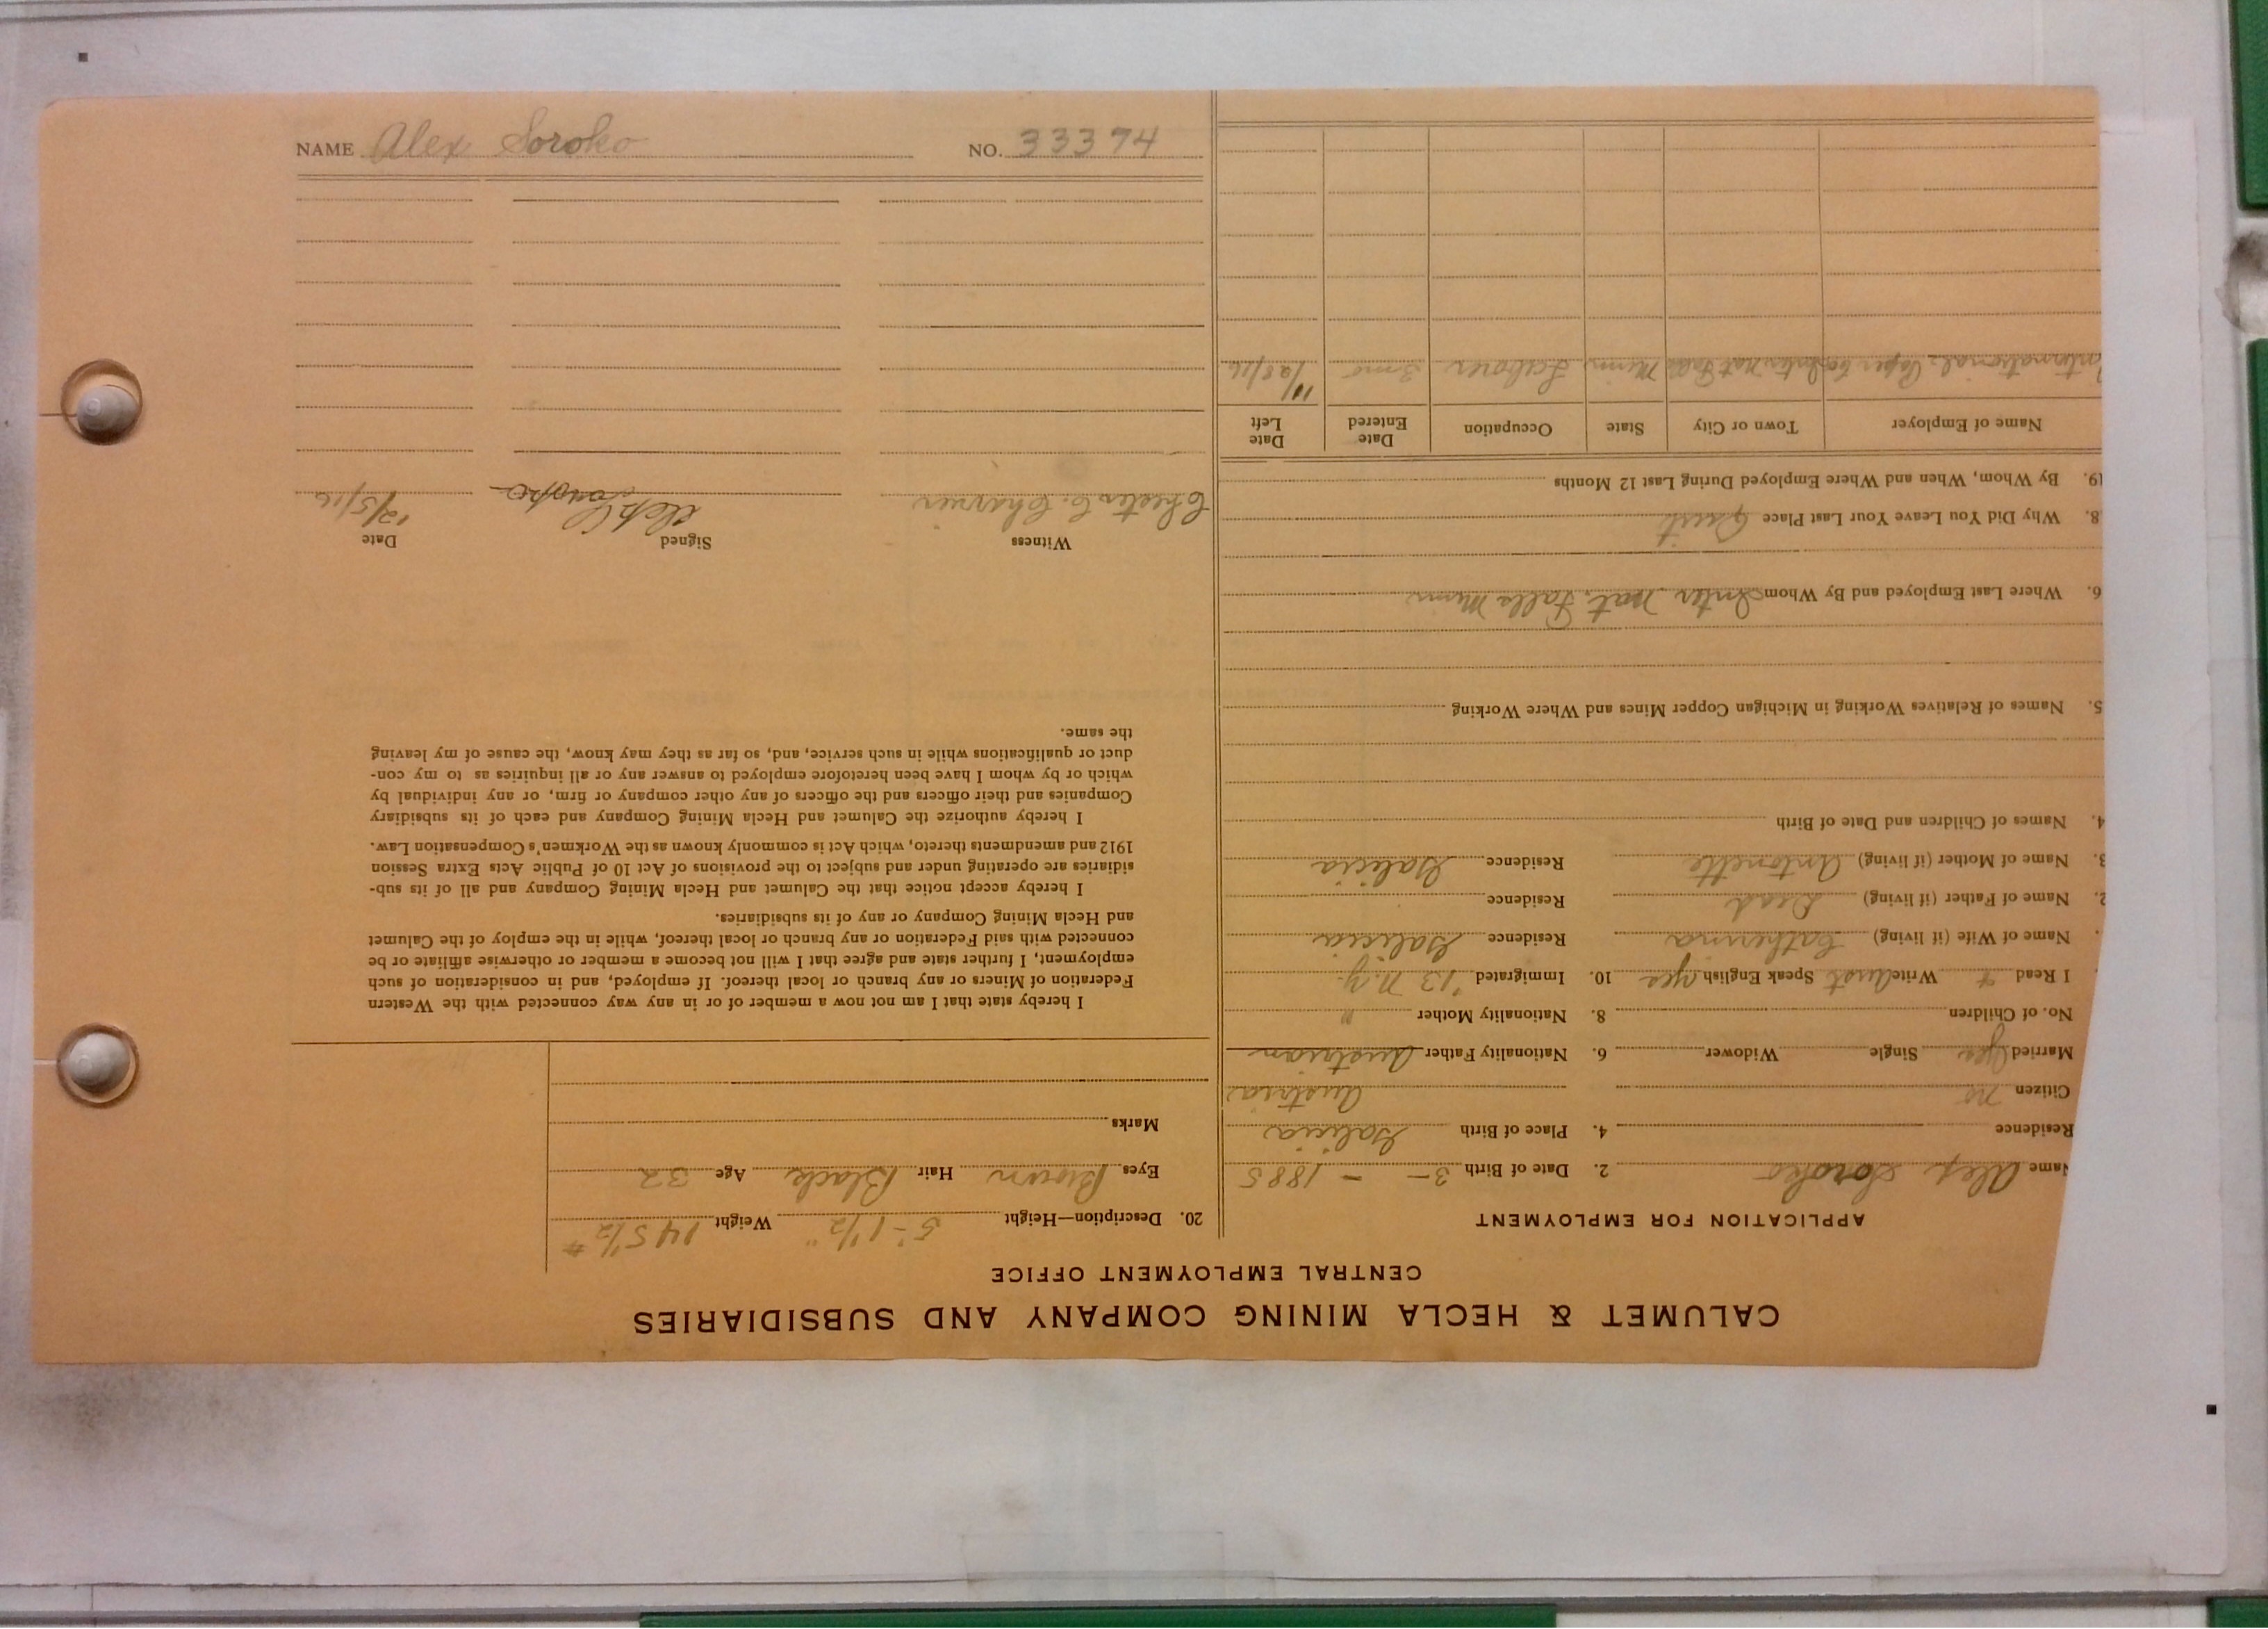 NAME Alex Soroko NO. 33374
CALUMET & HECLA MINING COMPANY AND SUBSIDIARIES
CENTRAL EMPLOYMENT OFFICE
APPLICATION FOR EMPLOYMENT
Name Alex Soroko 2. Date of Birth 3 - - 1885
Residence 4. Place of Birth Galicia
Citizen no Austria
Married Yes Single Widower 6. Nationality Father Austrian
No. of Children 8. Nationality Mother "
I Read + Write Aust Speak English yes 10. Immigrated '13 N.Y.
Name of Wife (if living) Catherina Residence Galicia
2. Name of Father (if living) Dead Residence
3. Name of Mother (if living) Antonette Residence Galicia
4. Names of Children and Date of Birth
5. Names of Relatives Working in Michigan Copper Mines and Where Working
6. Where Last Employed and By Whom Inter nat. Falls Minn
8. Why Did You Leave Your Last Place Quit
19. By Whom, When and Where Employed During Last 12 Months
Name of Employer Town or City State Occupation Date Entered Date Left
International Paper Co Inter Nat Falls Minn Laborer 3 mo 11/28/16
20. Description—Height 5-1 1/2" Weight 145 1/2 #
Eyes Brown Hair Black Age 32
Marks
I hereby state that I am not now a member of or in any way connected with the Western
Federation of Miners or any branch or local thereof. If employed, and in consideration of such
employment, I further state and agree that I will not become a member or otherwise affiliate or be
connected with said Federation or any branch or local thereof, while in the employ of the Calumet
and Hecla Mining Company or any of its subsidiaries.
I hereby accept notice that the Calumet and Hecla Mining Company and all of its sub-
sidiaries are operating under and subject to the provisions of Act 10 of Public Acts Extra Session
1912 and amendments thereto, which Act is commonly known as the Workmen's Compensation Law.
I hereby authorize the Calumet and Hecla Mining Company and each of its subsidiary
Companies and their officers and the officers of any other company or firm, or any individual by
which or by whom I have been heretofore employed to answer any or all inquiries as to my con-
duct or qualifications while in such service, and, so far as they may know, the cause of my leaving
the same.
Witness Signed Date
Chester C. Charrier Soroko 12/5/16